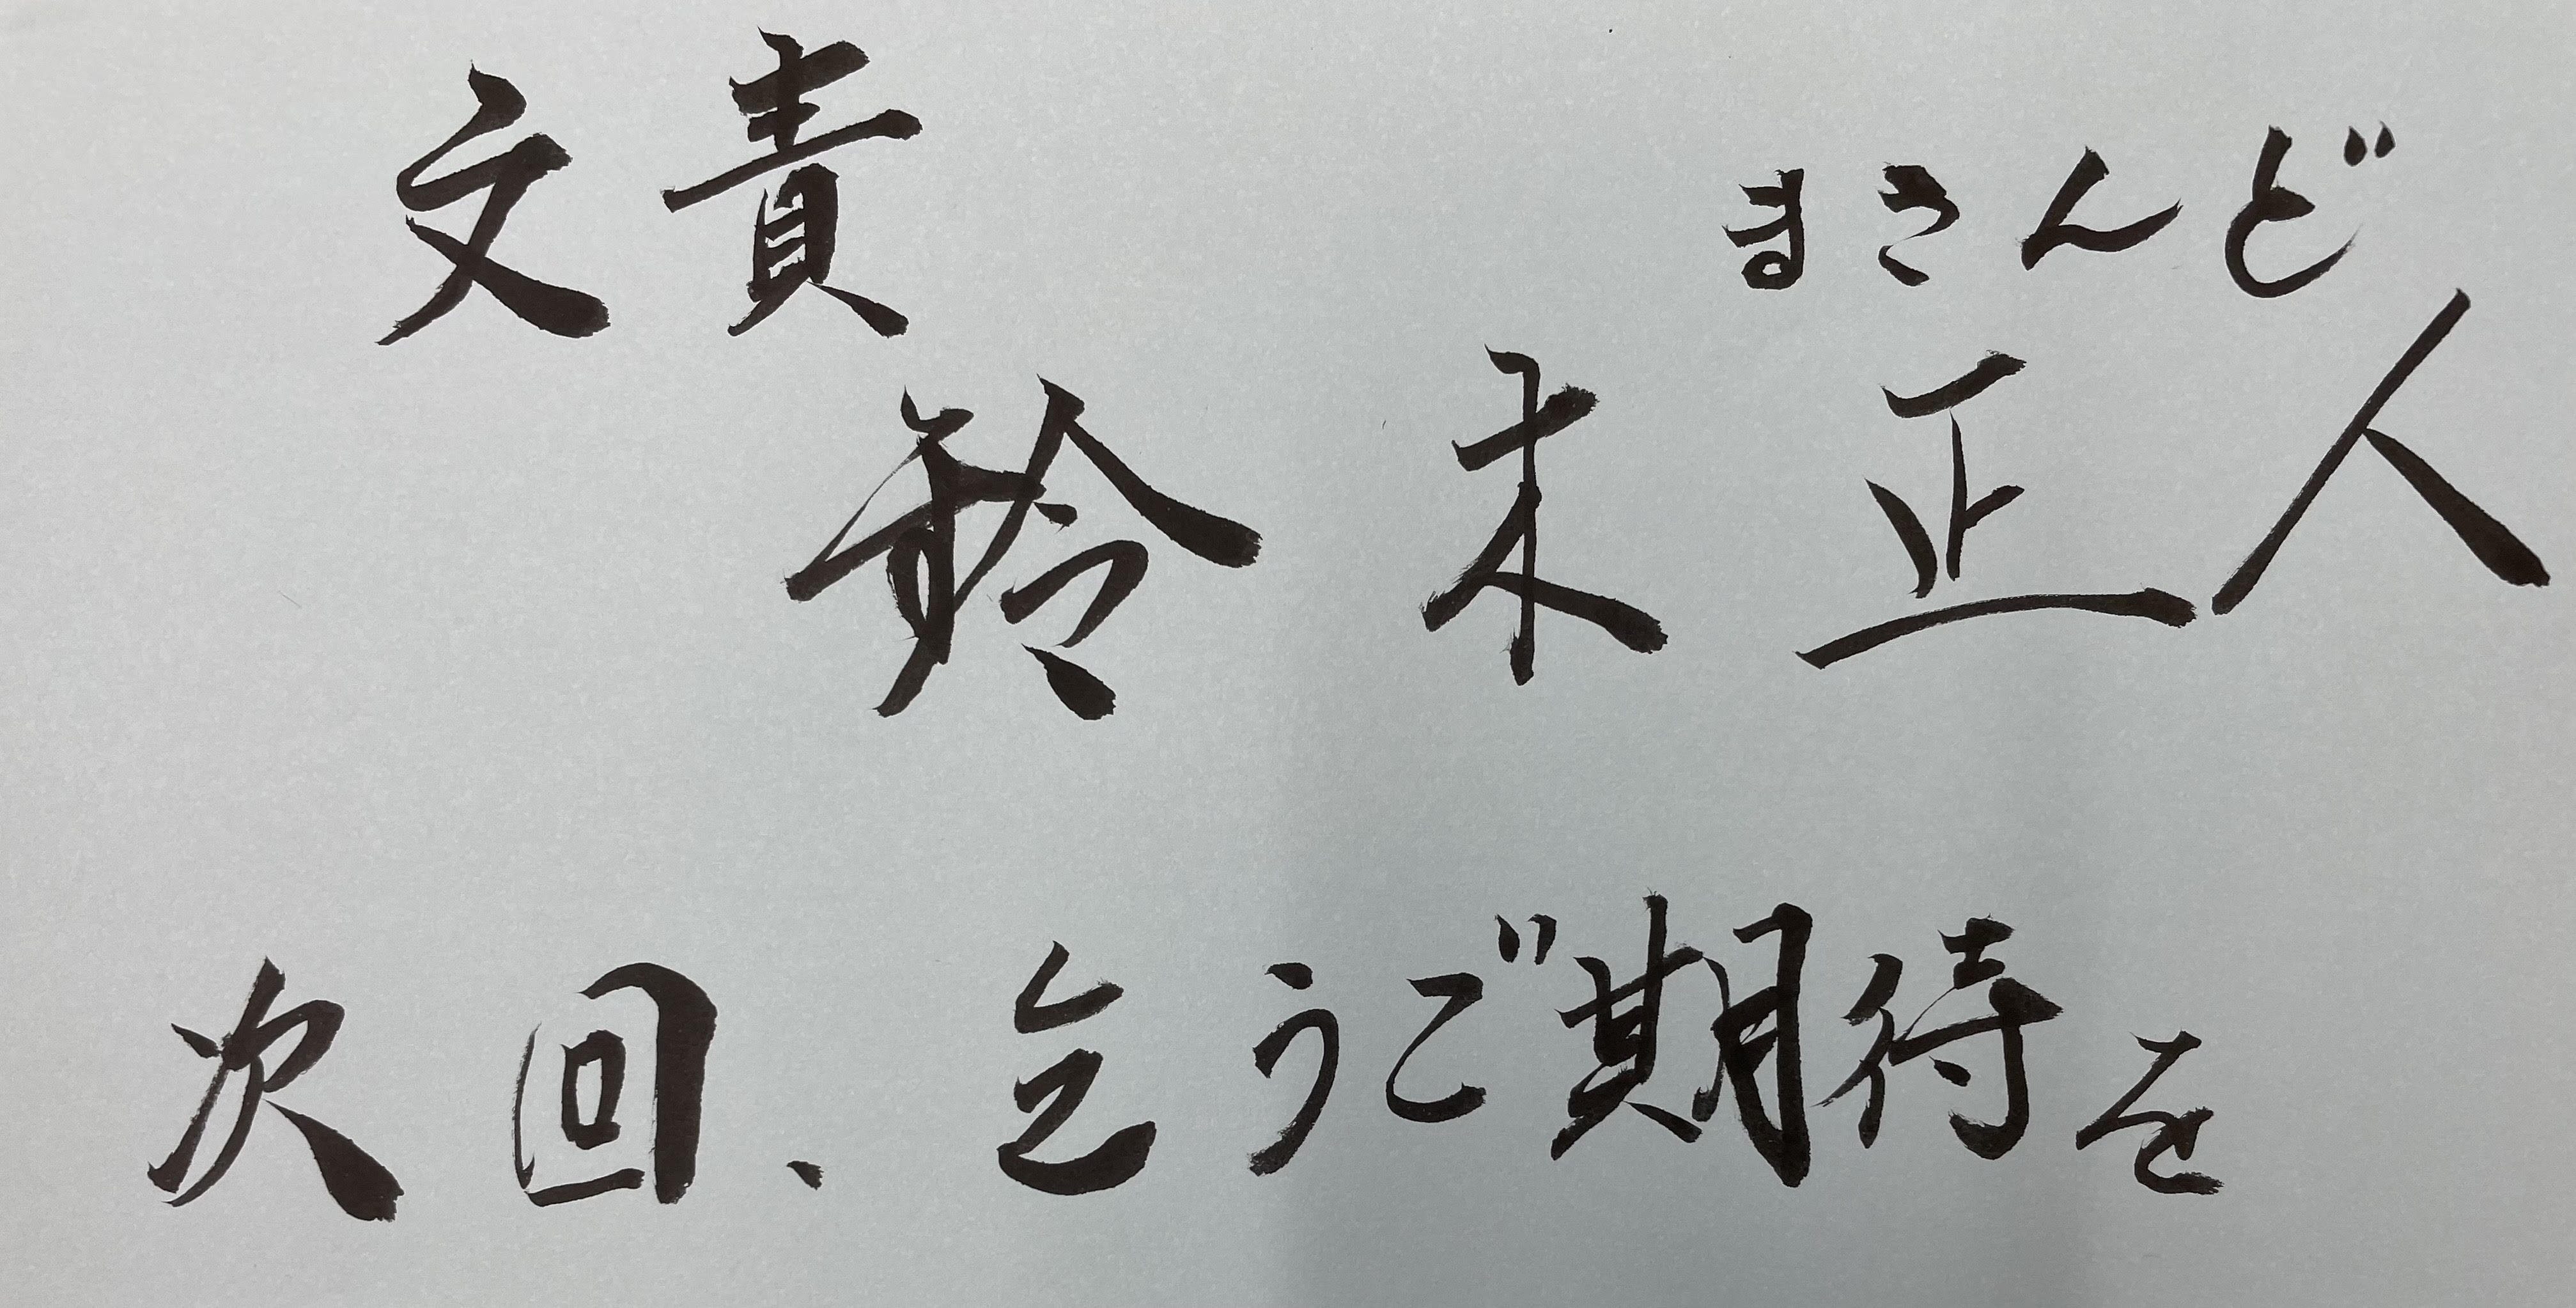 文責
まさんど
鈴木正人
次回、乞うご期待を